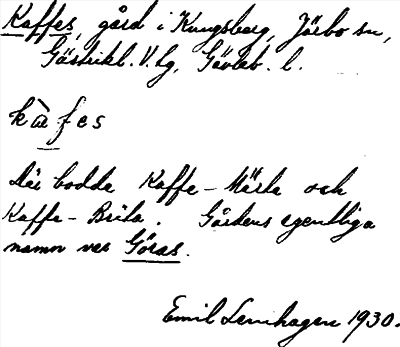 Kaffes, gård i Kungsberg, Järbo sn,
Gästrikl. V. tg, Gävleb. l.
kàfes
Där bodde Kaffe-Märta och
Kaffe-Brita. Gårdens egentliga
namn var Göras.
Emil Lernhagen 1930.